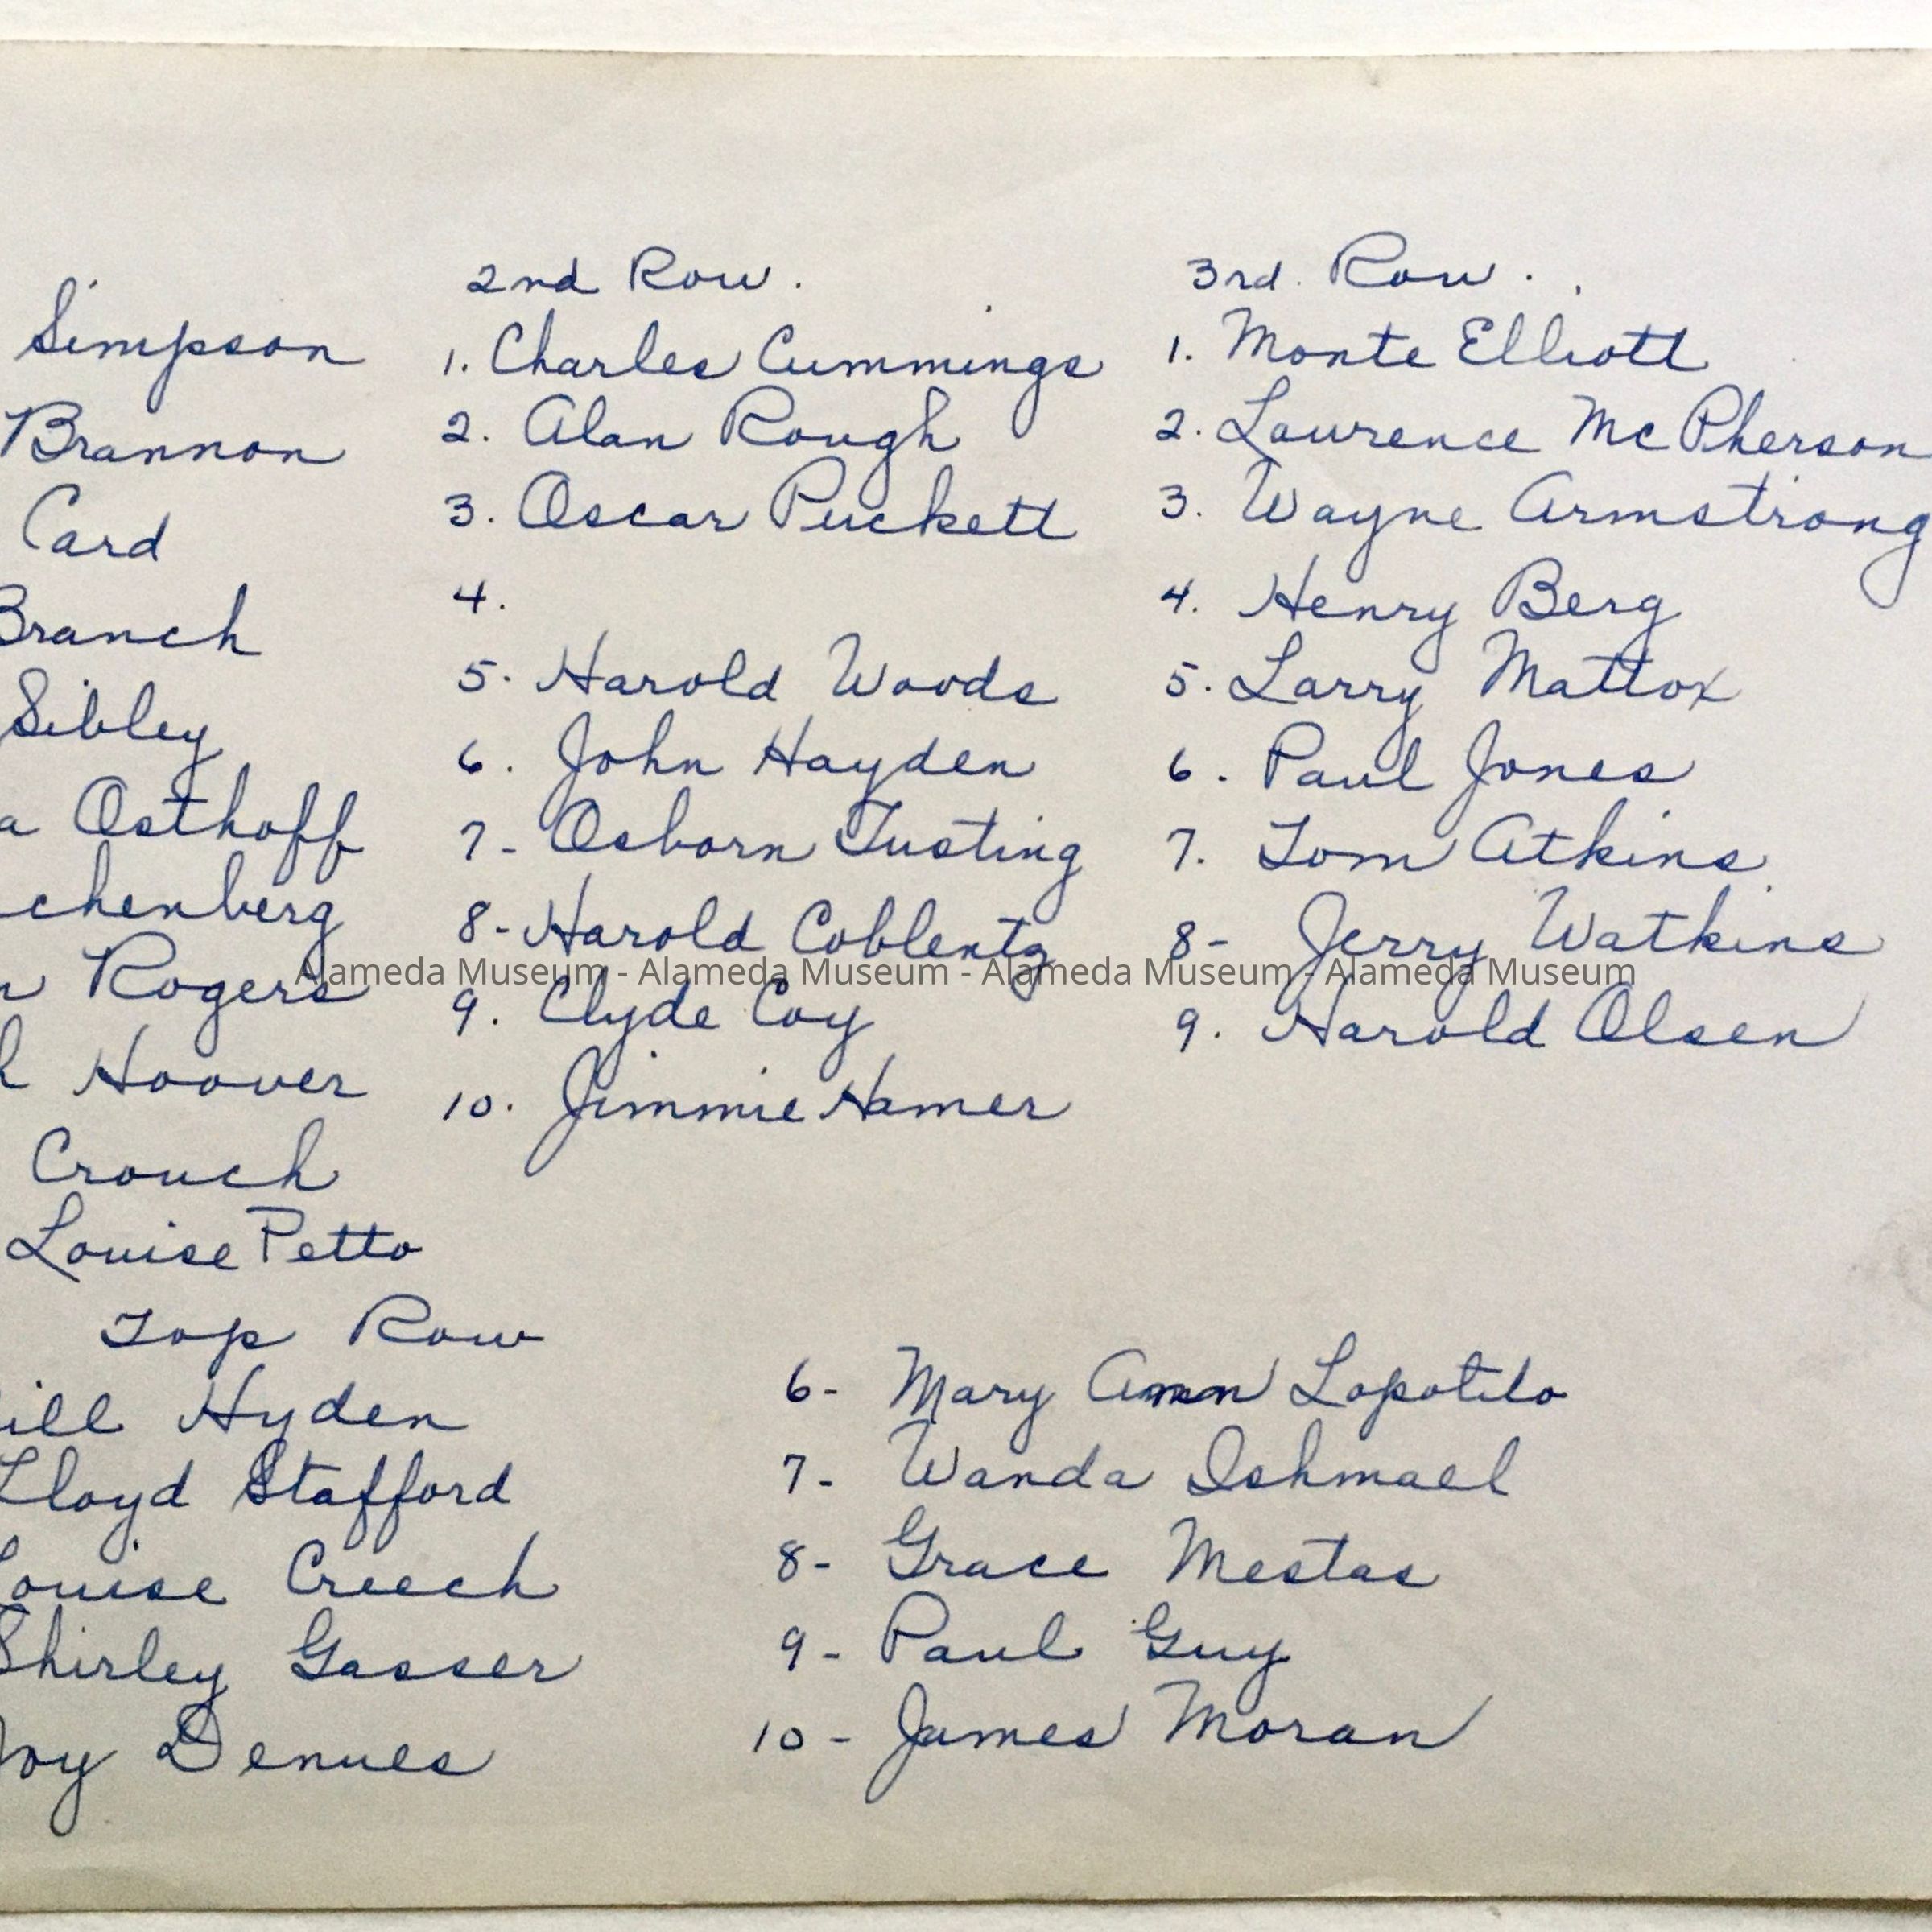 Simpson
Brannon
Card
Branch
Sibley
a Osthoff
chenberg
n Rogers
h Hoover
Crouch
Louise Petto
2nd Row.
1. Charles Cummings
2. Alan Rough
3. Oscar Puckett
4.
5. Harold Woods
6. John Hayden
7- Osborn Tusting
8- Harold Coblentz
9. Clyde Coy
10. Jimmie Hamer
3rd. Row.
1. Monte Elliott
2. Laurence McPherson
3. Wayne Armstrong
4. Henry Berg
5. Larry Mattox
6. Paul Jones
7. Tom Atkins
8- Jerry Watkins
9. Harold Olsen
Alameda Museum - Alameda Museum - Alameda Museum - Alameda Museum
Top Row
ill Hyden
Lloyd Stafford
Louise Creech
Shirley Gasser
oy Denues
6- Mary Ann Lopotilo
7- Wanda Ishmael
8- Grace Mestas
9- Paul Guy
10- James Moran